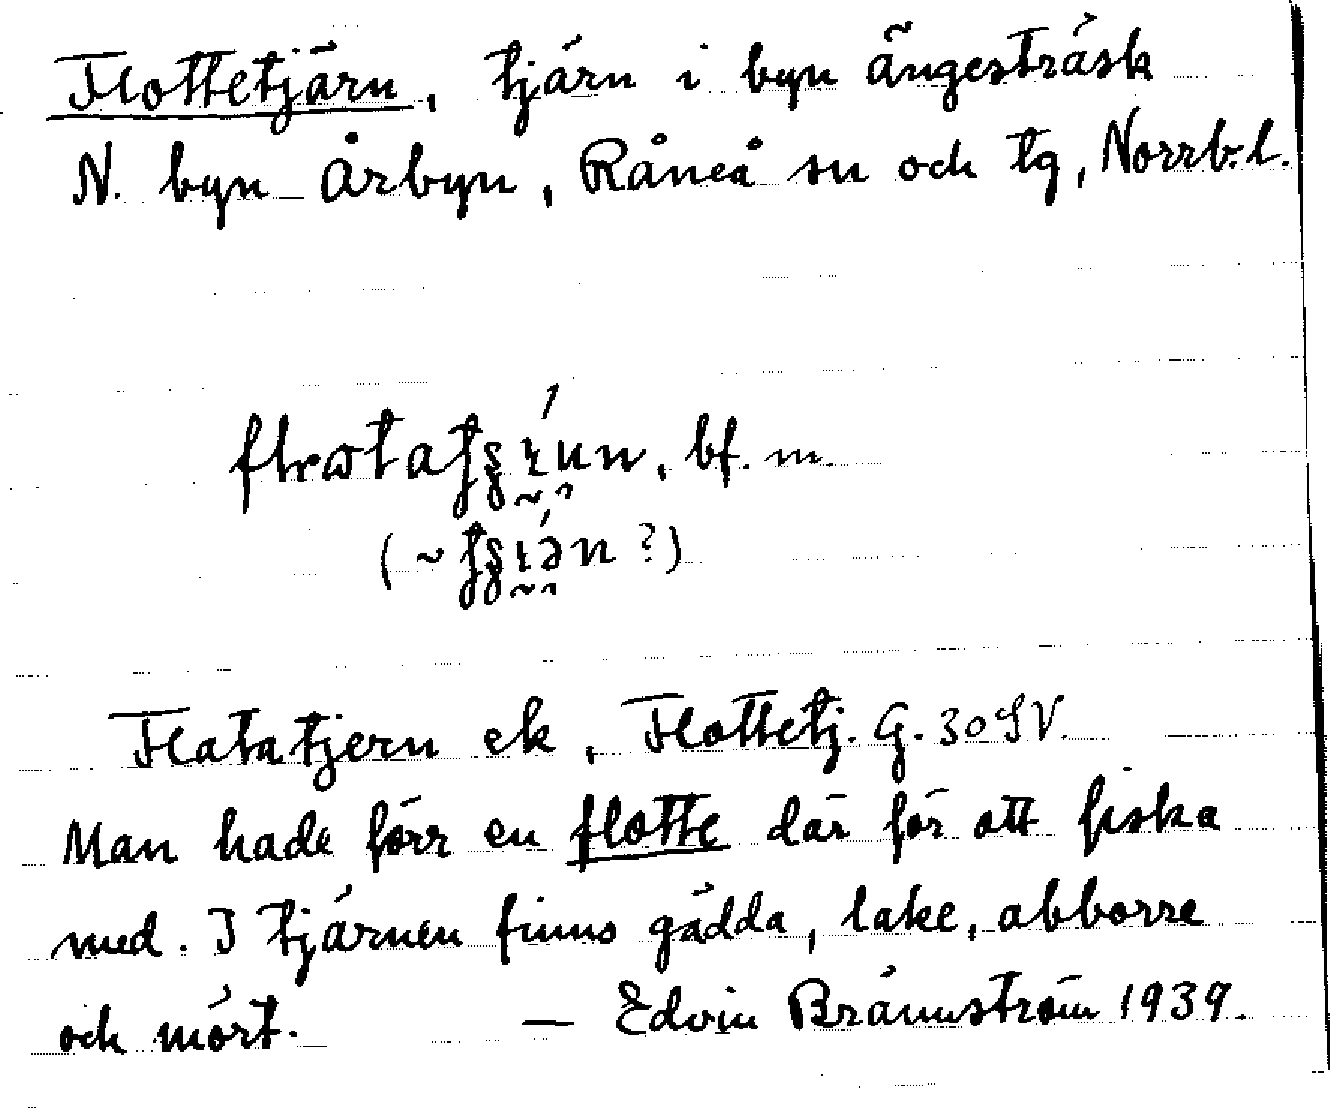 Flottetjärn, tjärn i byn ängesträsk
N. byn Årbyn, Råneå sn och tg, Norrb.l.
bf. m.
(~ ?)
Flatatjern ek, Flottetj. G. 30 SV.
Man hade förr en flotte där för att fiska
med. I tjärnen finns gädda, lake, abborre
och mört. — Edvin Brännström 1939.